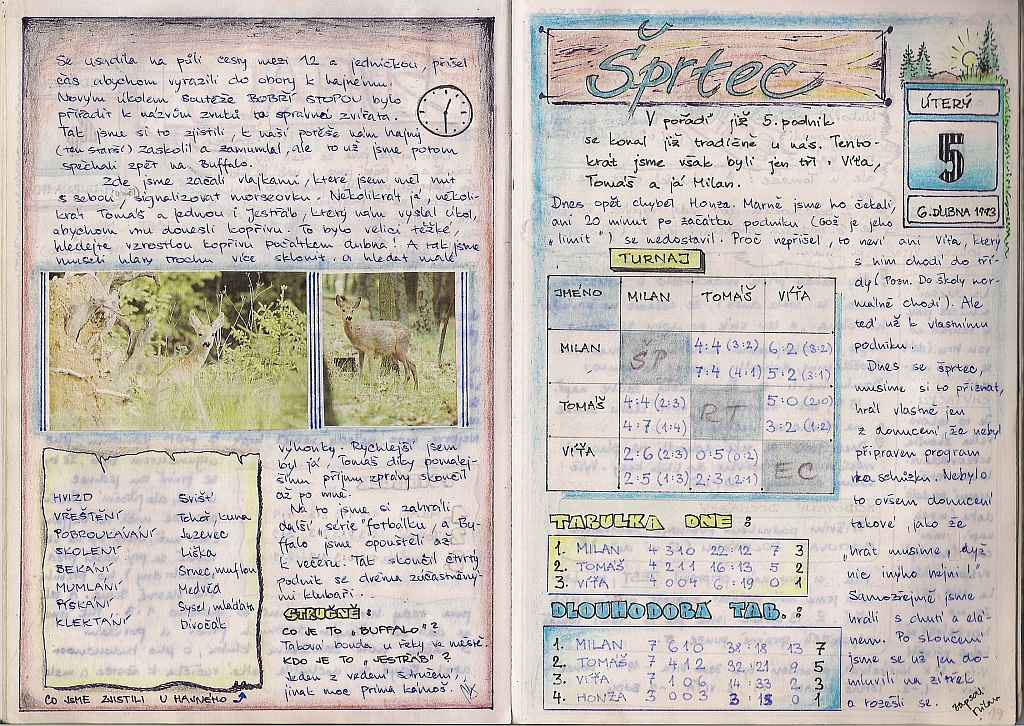 Se usadila na půli cesty mezi 12 a jedničkou, přišel
čas abychom vyrazili do obory k hajnému.
Novým úkolem soutěže BOBŘÍ STOPOU bylo
přiřadit k názvům zvuků ta správná zvířata.
Tak jsme si to zjistili, k naší potěše nám hajný
(ten starší) zaskolil a zamumlal, ale to už jsme potom
spěchali zpět na Buffalo.
Zde jsme začali vlajkami, které jsem měl mít
s sebou, signalizovat morseovku. Několikrát já, několi-
krát Tomáš a jednou i Jestřáb, který nám vyslal úkol,
abychom mu donesli kopřivu. To bylo velicí těžké,
hledejte vzrostlou kopřivu počátkem dubna! A tak jsme
museli hlavy trochu více sklonit a hledat malé
výhonky. Rychlejší jsem
byl já, Tomáš díky pomalej-
šímu příjmu zprávy skončil
až po mně.
Na to jsme si zahráli
další "série" fotbálku, a Bu-
ffalo jsme opouštěli až
k večeru. Tak skončil čtvrtý
podnik se dvěma zúčastněný-
mi klubaři..
STRUČNĚ:
CO JE TO "BUFFALO"?
Taková bouda u řeky ve městě.
KDO JE TO "JESTŘÁB"?
Jeden z vedení sdružení,
jinak moc prima kámoš.
HVIZD Svišť
VŘEŠTĚNÍ Tchoř, kuna
POBROUKÁVÁNÍ Jezevec
SKOLENÍ Liška
BEKÁNÍ Srnec, muflon
MUMLÁNÍ Medvěd
PÍSKÁNÍ Sysel, mláďata
KLEKTÁNÍ Divočák
CO JSME ZJISTILI U HAJNÉHO
Šprtec
ÚTERÝ
5
6. DUBNA 1993
V pořadí již 5. podnik
se konal již tradičně u nás. Tento-
krát jsme však byli jen tři: Víťa,
Tomáš a já Milan.
Dnes opět chyběl Honza. Marně jsme ho čekali,
ani 20 minut po začátku podniku (což je jeho
"limit") se nedostavil. Proč nepřišel, to neví ani Víťa, který
s ním chodí do tří-
dy (Pozn. Do školy nor-
málně chodí). Ale
teď už k vlastnímu
podniku.
Dnes se šprtec,
musíme si to přiznat,
hrál vlastně jen
z donucení, že nebyl
připraven program
na schůzku. Nebylo
to ovšem donucení
takové, jako že
"hrát musíme, dyž
nic inýho nejni!"
Samozřejmě jsme
hráli s chutí a elá-
nem. Po skončení
jsme se už jen do-
mluvili na zítřek
a rozešli se.
zapsal Milan
TURNAJ
JMÉNO MILAN TOMÁŠ VÍŤA
MILAN ŠP 4:4 (3:2) 6:2 (3:2)
7:4 (4:1) 5:2 (3:1)
TOMÁŠ 4:4 (2:3) RT 5:0 (2:0)
4:7 (1:4) 3:2 (1:2)
VÍŤA 2:6 (2:3) 0:5 (0:2) EC
2:5 (1:3) 2:3 (2:1)
TABULKA DNE:
1. MILAN 4 3 1 0 22:12 7 3
2. TOMÁŠ 4 2 1 1 16:13 5 2
3. VÍŤA 4 0 0 4 6:19 0 1
DLOUHODOBÁ TAB.:
1. MILAN 7 6 1 0 38:18 13 7
2. TOMÁŠ 7 4 1 2 32:21 9 5
3. VÍŤA 7 1 0 6 14:33 2 3
4. HONZA 3 0 0 3 3:15 0 1